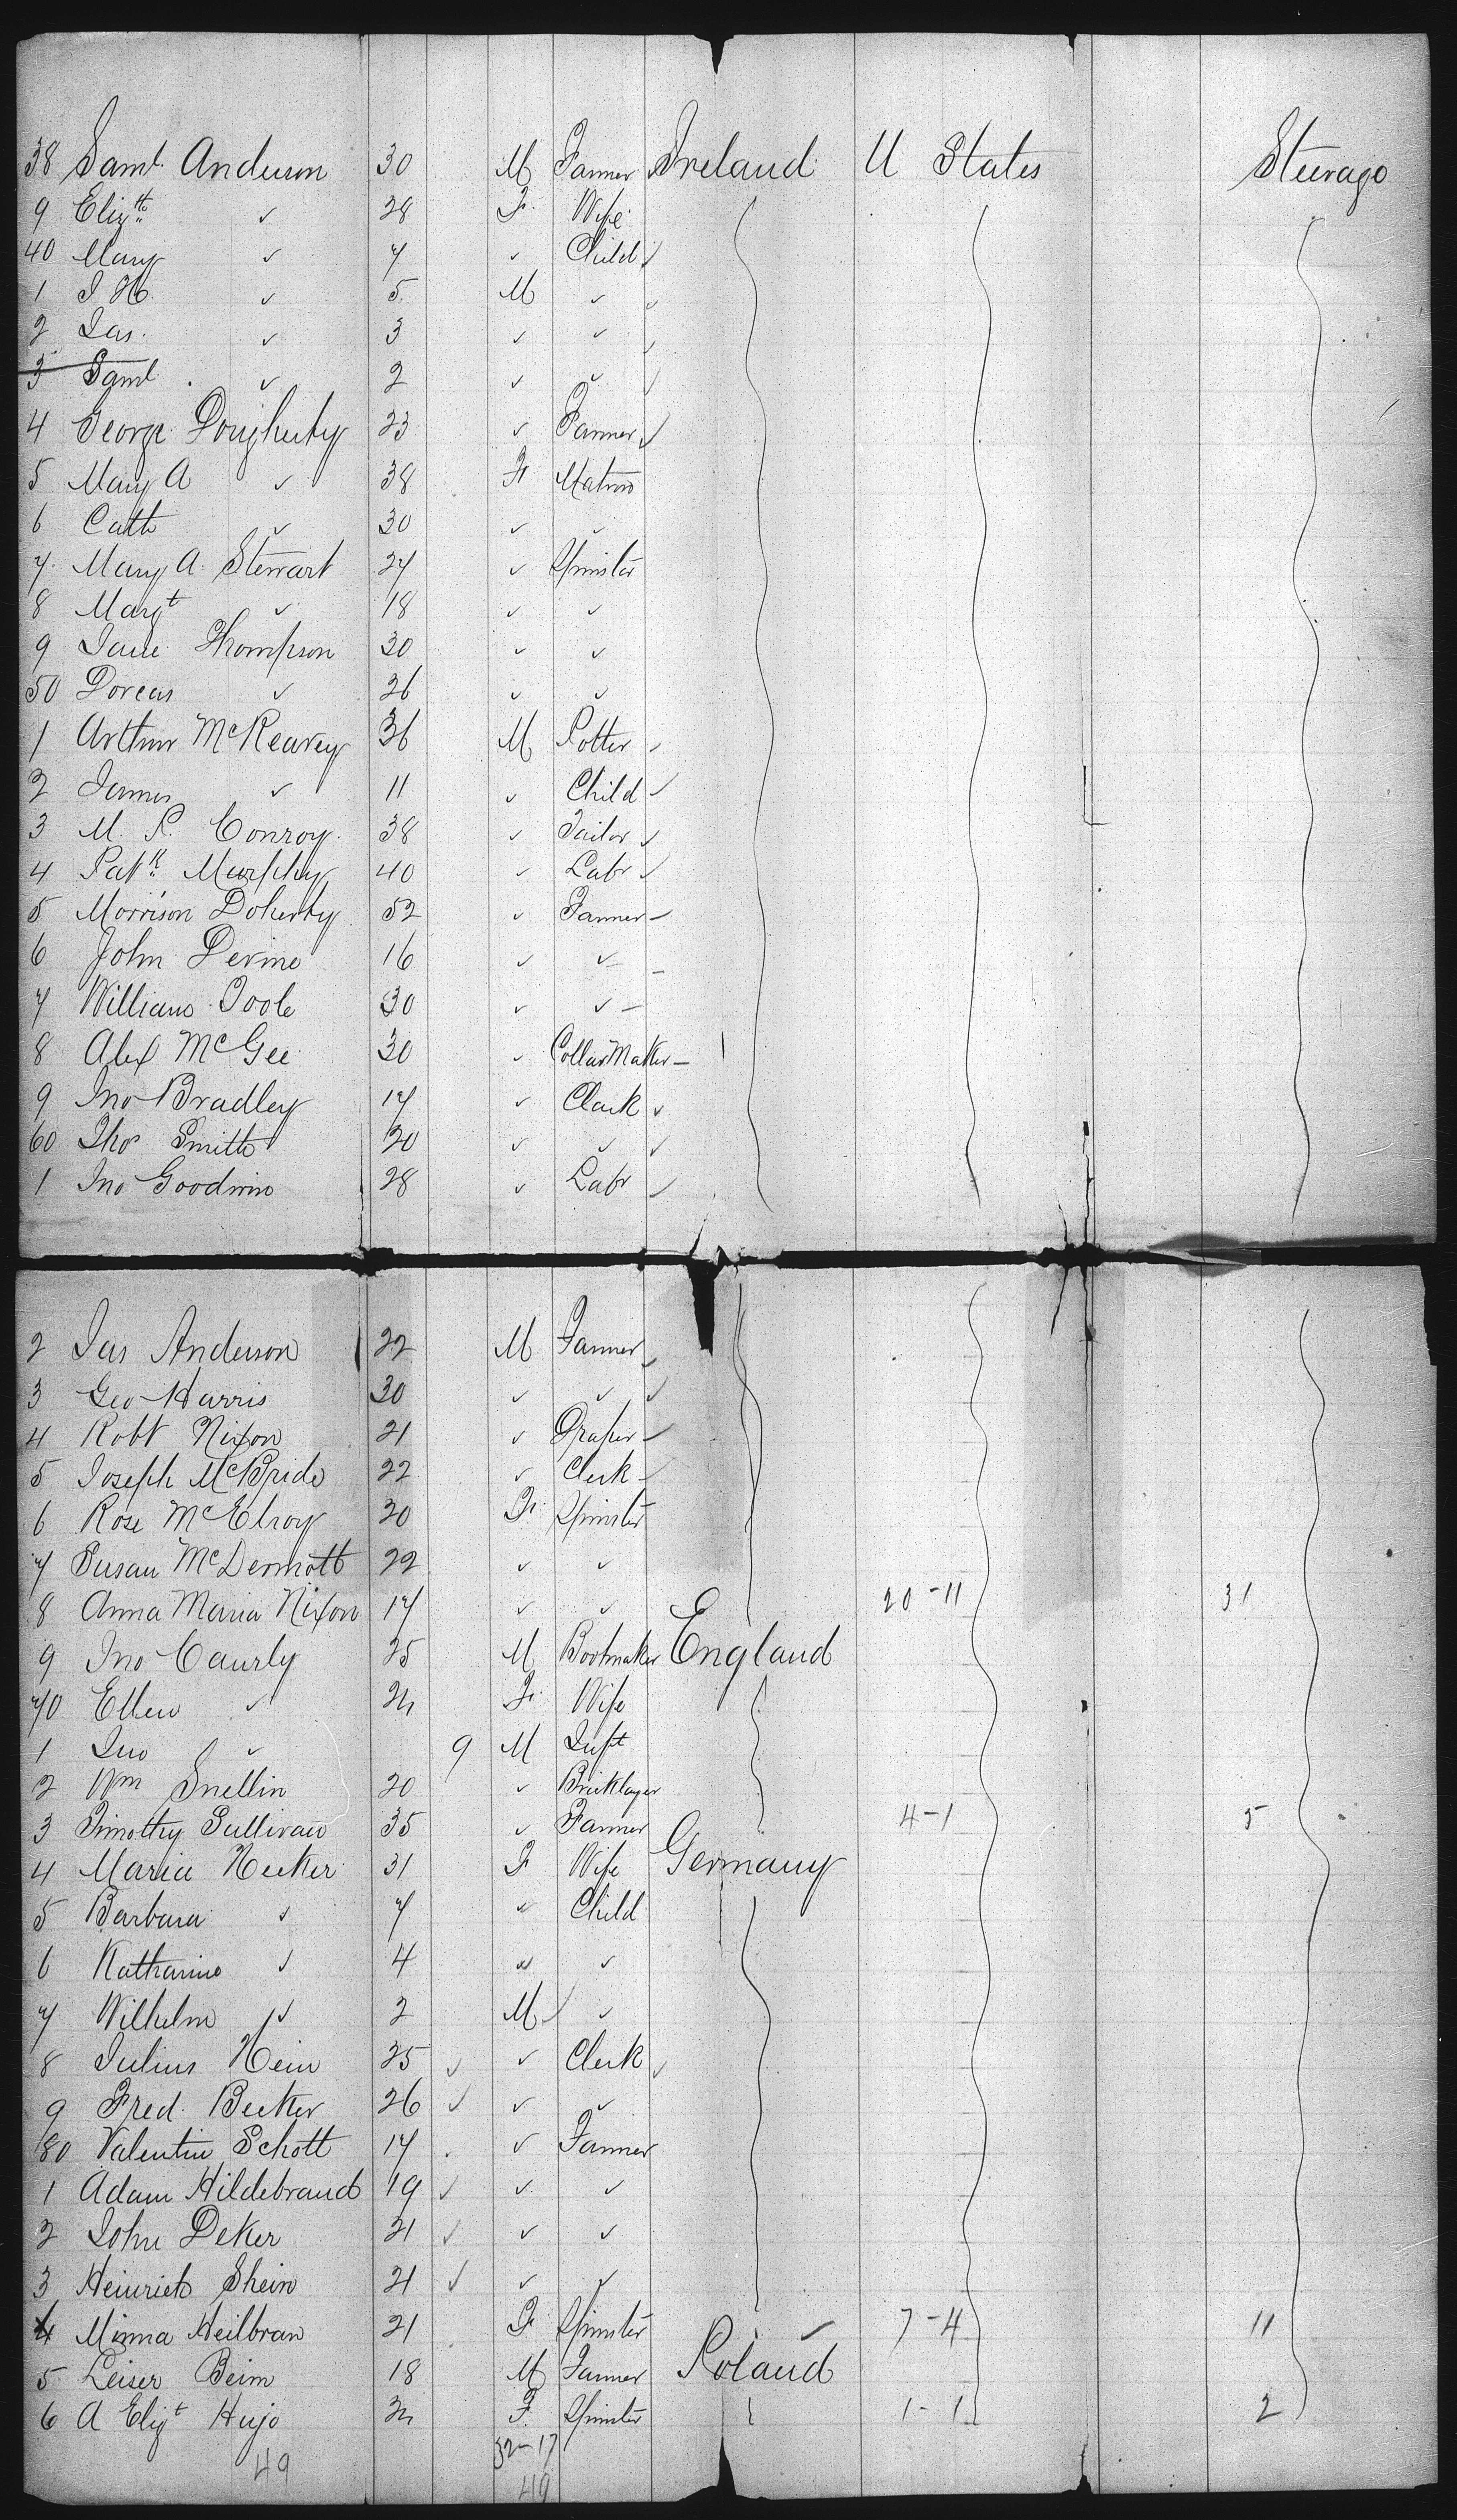 38 Saml. Anderson 30 M Farmer Ireland U States Steerage
9 Elizth ✓ 28 F. Wife
40 Mary ✓ 7 ✓ Child ✓
1 J H. ✓ 5 M ✓ ✓
2 Jas. ✓ 3 ✓ ✓ ✓
3 Saml ✓ 2 ✓ ✓ ✓
4 George Dougherty 23 ✓ Farmer ✓
5 Mary A ✓ 38 F Matron
6 Cath ✓ 30 ✓ ✓
7. Mary A. Stewart 24 ✓ Spinster
8 Margt ✓ 18 ✓ ✓
9 Jane Thompson 30 ✓ ✓
50 Dorcas ✓ 26 ✓ ✓
1 Arthur McKeavey 36 M Potter ✓
2 James ✓ 11 ✓ Child ✓
3 M. P. Conroy. 38 ✓ Tailor ✓
4 Patk. Murphy 40 ✓ Labr ✓
5 Morrison Doherty 52 ✓ Farmer –
6 John Devine 16 ✓ ✓ –
7 William Toole 30 ✓ ✓ –
8 Alex McGee 30 ✓ Collar Maker –
9 Jno Bradley 17 ✓ Clark ✓
60 Thos Smith 20 ✓ ✓ ✓
1 Jno Goodwin 28 ✓ Labr ✓
2 Jas Anderson 22 M Farmer ✓
3 Geo Harris 30 ✓ ✓ ✓
4 Robt Nixon 21 ✓ Draper –
5 Joseph McBride 22 ✓ Clerk –
6 Rose McElroy 20 F. Spinster
7 Susan McDermott 22 ✓ ✓
8 Anna Maria Nixon 17 ✓ ✓ 20-11 31
9 Jno Caurly 25 M Bootmaker England
70 Ellen ✓ 24 F. Wife
1 Jno ✓ 9 M Inft
2 Wm Snellin 20 ✓ Bricklayer
3 Timothy Sullivan 35 ✓ Farmer 4-1 5
4 Maria Necker 31 F Wife Germany
5 Barbara ✓ 7 ✓ Child
6 Katharine ✓ 4 ✓ ✓
7 Wilhelm ✓ 2 M ✓
8 Julius Hein 25 ✓ ✓ Clerk ✓
9 Fred. Becker 26 ✓ ✓ ✓
80 Valentin Schott 17 ✓ Farmer
1 Adam Hildebrand 19 ✓ ✓ ✓
2 John Deker 21 ✓ ✓ ✓
3 Heinrich Shein 21 ✓ ✓ ✓
4 Minna Heilbran 21 F. Spinster 7-4 11
5 Leiser Beim 18 M Farmer Poland
6 A Elizt Hujo 24 F. Spinster 1-1 2
32-17
49 49